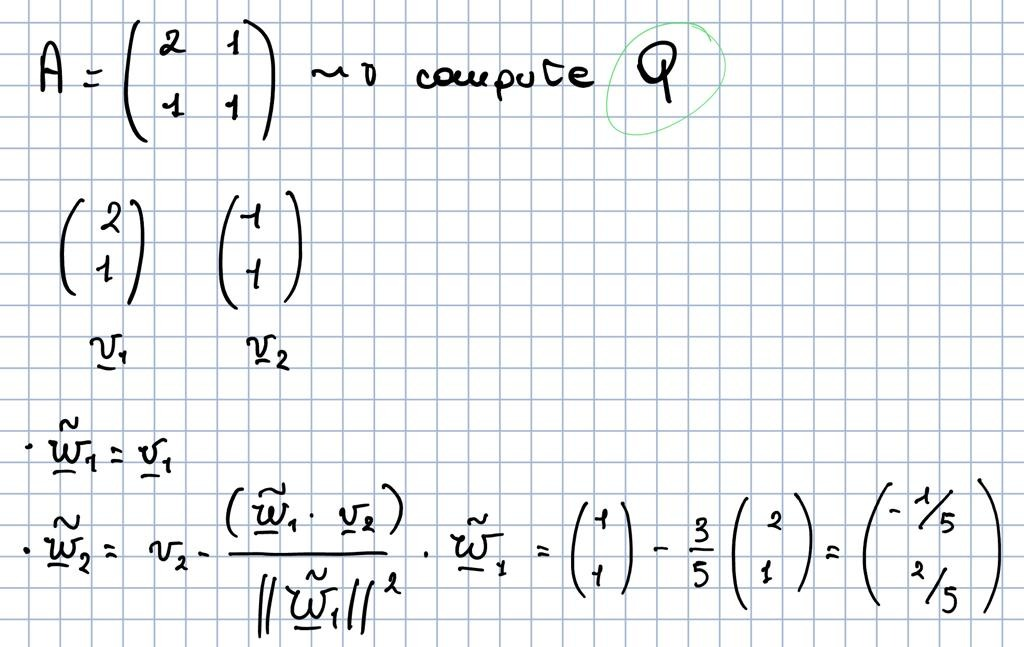 A = (2 1 / 1 1) ~> compute Q
(2 / 1) (1 / 1)
v₁ v₂
· w̃₁ = v₁
· w̃₂ = v₂ - (w̃₁ · v₂) / ||w̃₁||² · w̃₁ = (1 / 1) - 3/5 (2 / 1) = (-1/5 / 2/5)